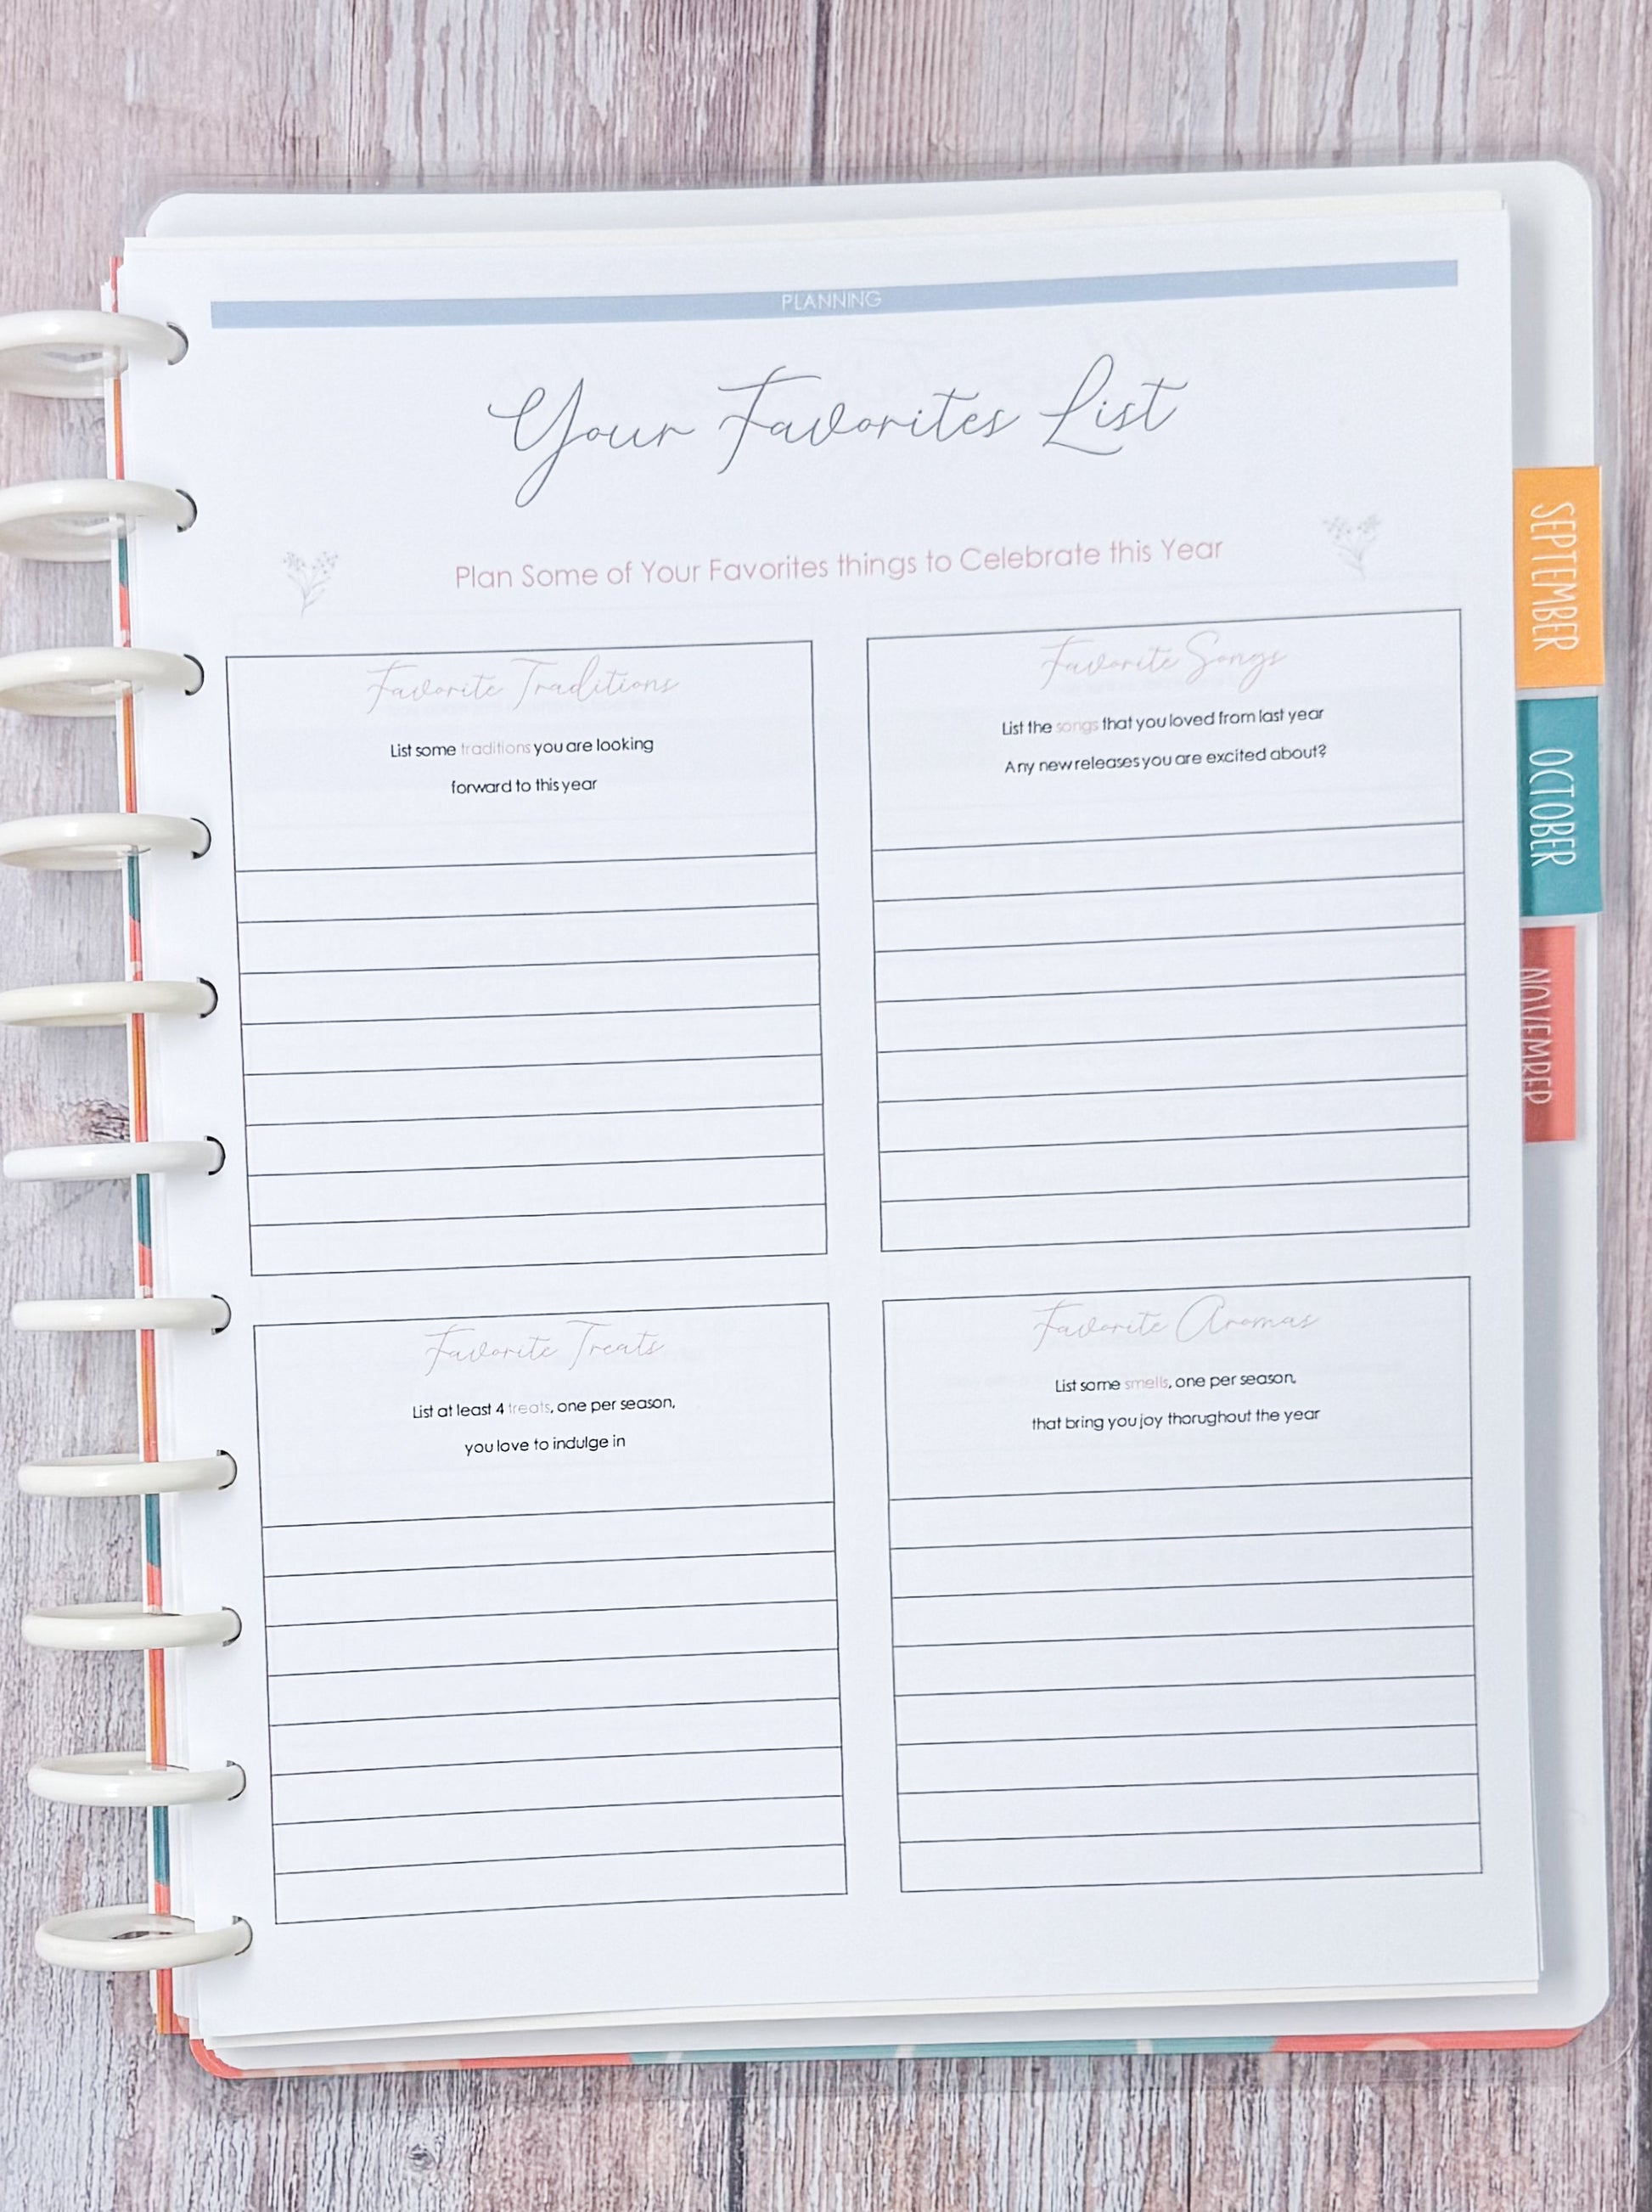 PLANNING
Your Favorites List
Plan Some of Your Favorites things to Celebrate this Year
Favorite Traditions
List some traditions you are looking
forward to this year
Favorite Songs
List the songs that you loved from last year
Any new releases you are excited about?
Favorite Treats
List at least 4 treats, one per season,
you love to indulge in
Favorite Aromas
List some smells, one per season,
that bring you joy thorughout the year
SEPTEMBER
OCTOBER
NOVEMBER